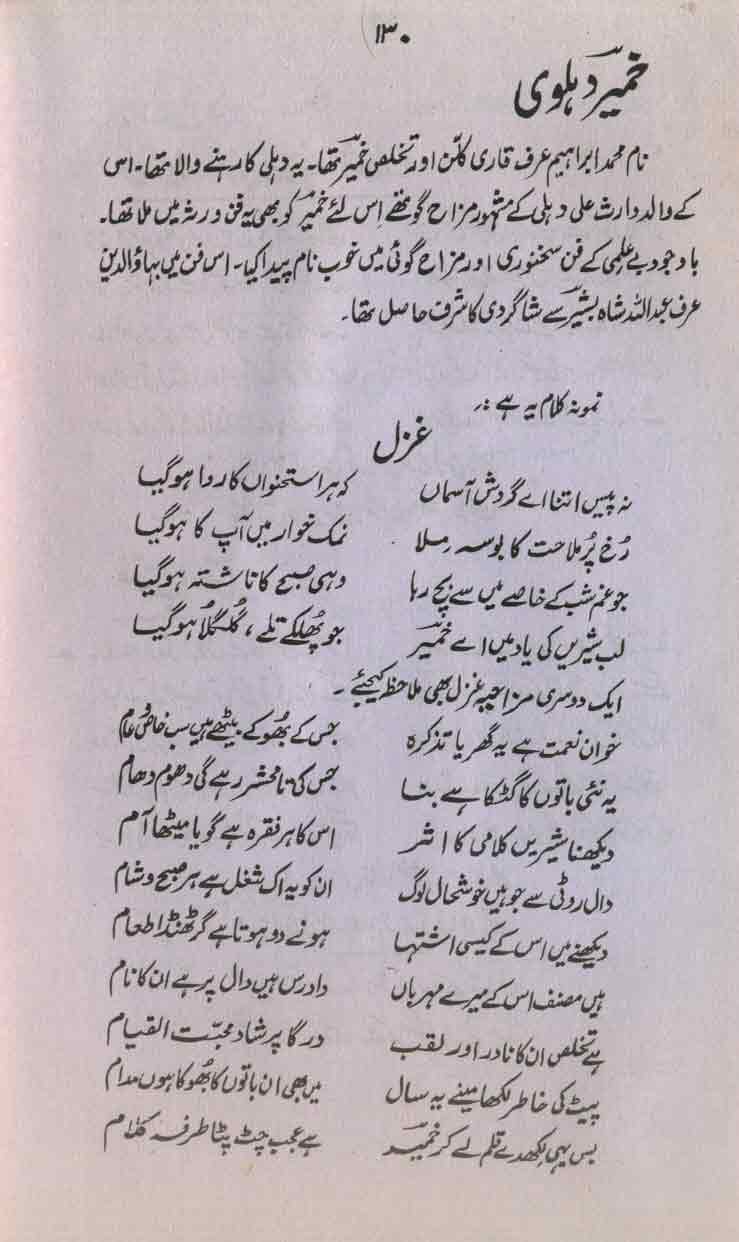 ۱۳۰
خمیر دہلوی
نام محمد ابراہیم عرف قاری کلّن اور تخلص خمیر تھا۔ یہ دہلی کا رہنے والا تھا۔ اس
کے والد وارث علی دہلی کے مشہور مزاح گو تھے اِس لئے خمیر کو بھی یہ فن ورثہ میں ملا تھا۔
باوجود بے علمی کے فن سخنوری اور مزاح گوئی میں خوب نام پیدا کیا۔ اس فن میں بہاؤ الدین
عرف عبداللہ شاہ بشیر سے شاگردی کا شرف حاصل تھا۔
نمونہ کلام یہ ہے :۔
غزل
نہ پیس اتنا اے گردش آسماں کہ ہر استخواں کا روا ہو گیا
رُخ پُر ملاحت کا بوسہ مِلا نمک خوار میں آپ کا ہو گیا
جو غم شب کے خاصے میں سے بچ رہا وہی صبح کا ناشتہ ہو گیا
لب شیریں کی یاد میں اے خمیر جو پُھلکے تلے ، گُلگُلا ہو گیا
ایک دوسری مزاحیہ غزل بھی ملاحظہ کیجئے ۔
خوان نعمت ہے یہ گھر یا تذکرہ جس کے بُھوکے بیٹھے ہیں سب خاص و عام
یہ نئی باتوں کا گٹکا ہے بنا جس کی تا محشر رہے گی دھوم دھام
دیکھنا شیریں کلامی کا اثر اس کا ہر فقرہ ہے گویا میٹھا آم
دال روٹی سے جو ہیں خوشحال لوگ ان کو یہ اک شغل ہے ہر صبح و شام
دیکھنے میں اس کے کیسی اشتہا ہونے دو ہوتا ہے گر ٹھنڈا طعام
ہیں مصنف اس کے میرے مہرباں دادرس ہیں دال پر ہے ان کا نام
ہے تخلص ان کا نادر اور لقب درگا پرشاد محبّت القیام
پیٹ کی خاطر لکھا مینے یہ سال میں بھی ان باتوں کا بُھوکا ہوں مدام
بس یہی لکھدے قلم لے کر خمیر ہے عجب چٹ پٹا طرفہ کلام